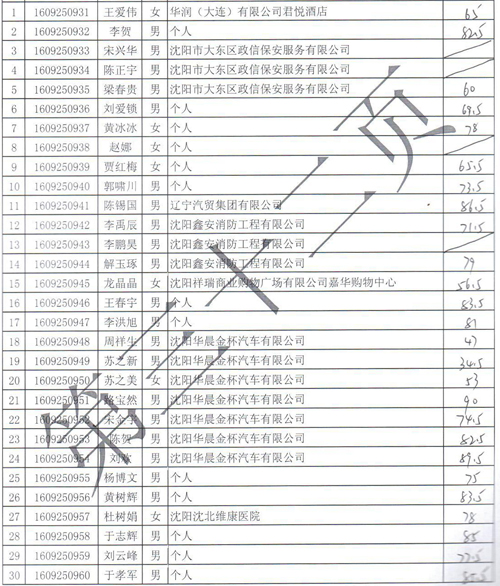 1 1609250931 王爱伟 女 华润（大连）有限公司君悦酒店 65
2 1609250932 李贺 男 个人 82.5
3 1609250933 宋兴华 男 沈阳市大东区政信保安服务有限公司
4 1609250934 陈正宇 男 沈阳市大东区政信保安服务有限公司
5 1609250935 梁春贵 男 沈阳市大东区政信保安服务有限公司 60
6 1609250936 刘爱锁 男 个人 69.5
7 1609250937 黄冰冰 女 个人 78
8 1609250938 赵娜 女 个人
9 1609250939 贾红梅 女 个人 65.5
10 1609250940 郭啸川 男 个人 73.5
11 1609250941 陈锡国 男 辽宁汽贸集团有限公司 86.5
12 1609250942 李禹辰 男 沈阳鑫安消防工程有限公司 71.5
13 1609250943 李鹏昊 男 沈阳鑫安消防工程有限公司
14 1609250944 解玉琢 男 沈阳鑫安消防工程有限公司 79
15 1609250945 龙晶晶 女 沈阳祥瑞商业购物广场有限公司嘉华购物中心 56.5
16 1609250946 王春宇 男 个人 83.5
17 1609250947 李洪旭 男 个人 81
18 1609250948 周祥生 男 沈阳华晨金杯汽车有限公司 47
19 1609250949 苏之新 男 沈阳华晨金杯汽车有限公司 34.5
20 1609250950 苏之美 女 沈阳华晨金杯汽车有限公司 53
21 1609250951 宝然 男 沈阳华晨金杯汽车有限公司 90
22 1609250952 宋金 男 沈阳华晨金杯汽车有限公司 74.5
23 1609250953 陈贺 男 沈阳华晨金杯汽车有限公司 82.5
24 1609250954 刘欢 男 沈阳华晨金杯汽车有限公司 89.5
25 1609250955 杨博文 男 个人 75
26 1609250956 黄树辉 男 个人 83.5
27 1609250957 杜树娟 女 沈阳沈北维康医院 78
28 1609250958 于志辉 男 个人 85
29 1609250959 刘云峰 男 个人 77.5
30 1609250960 于孝军 男 个人 85.5
第三十二页